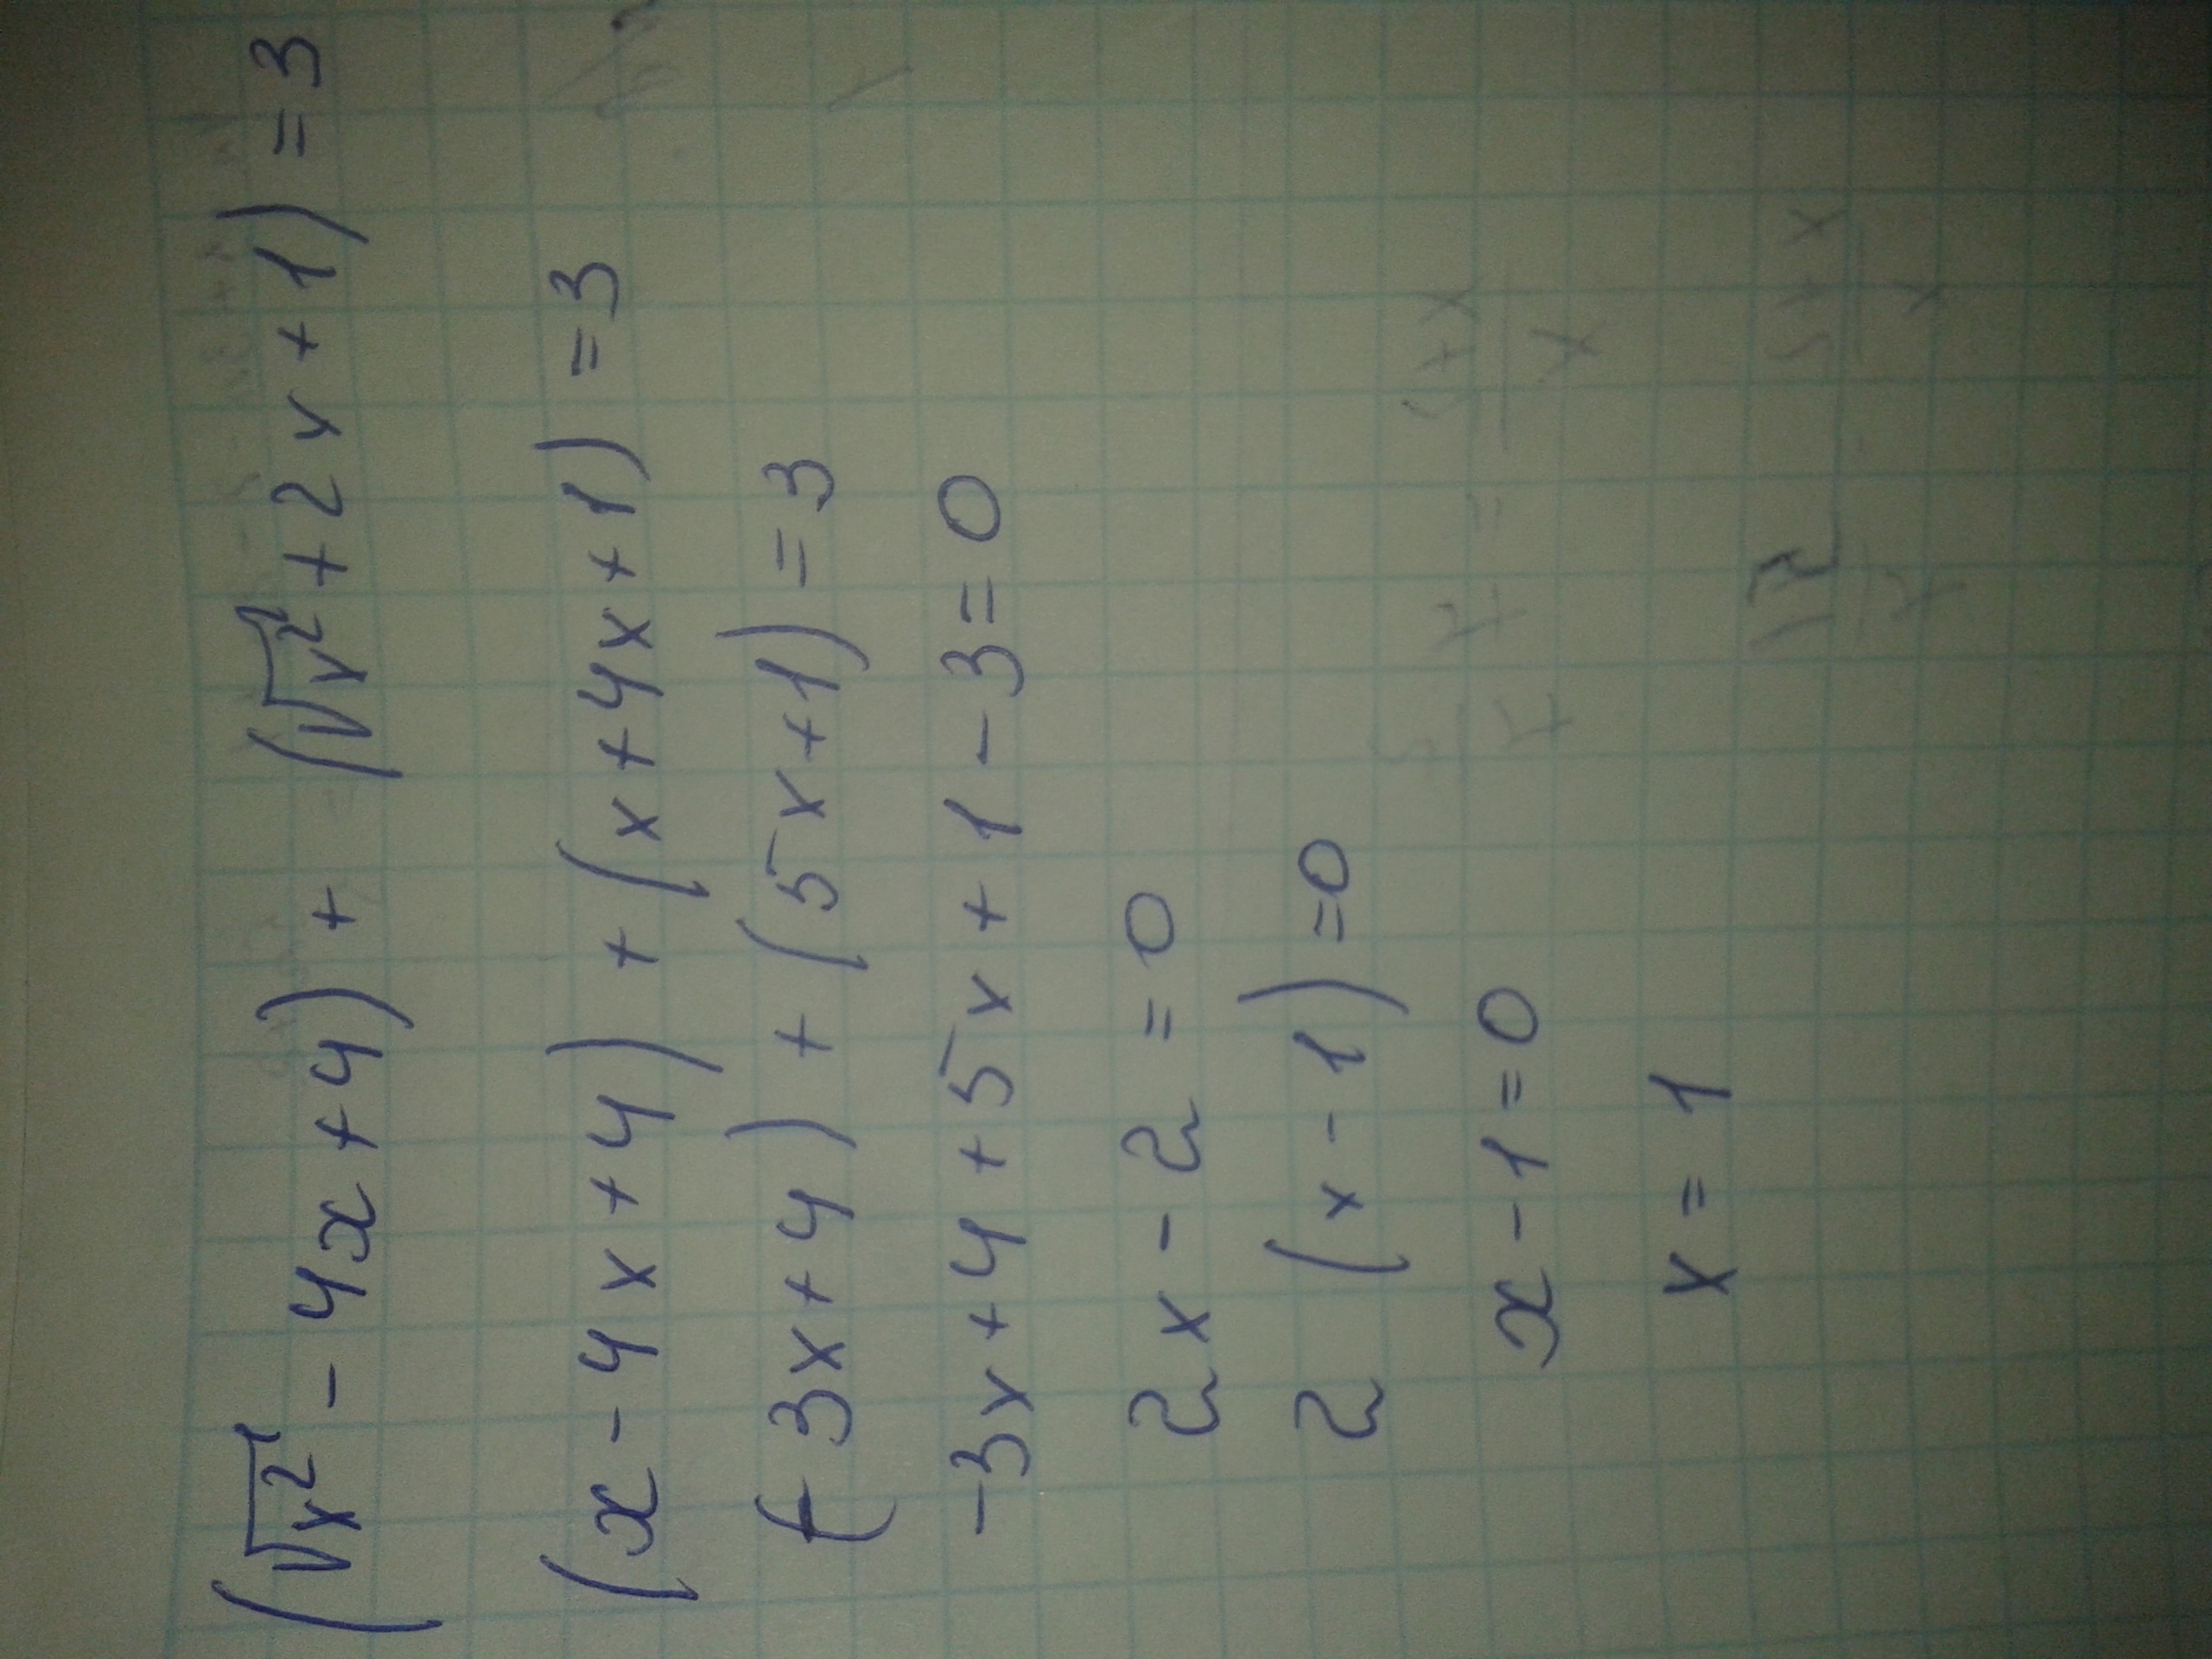 (√x² - 4x + 4) + (√x² + 2x + 1) = 3
(x - 4x + 4) + (x + 4x + 1) = 3
(-3x + 4) + (5x + 1) = 3
-3x + 4 + 5x + 1 - 3 = 0
2x - 2 = 0
2 (x - 1) = 0
x - 1 = 0
x = 1